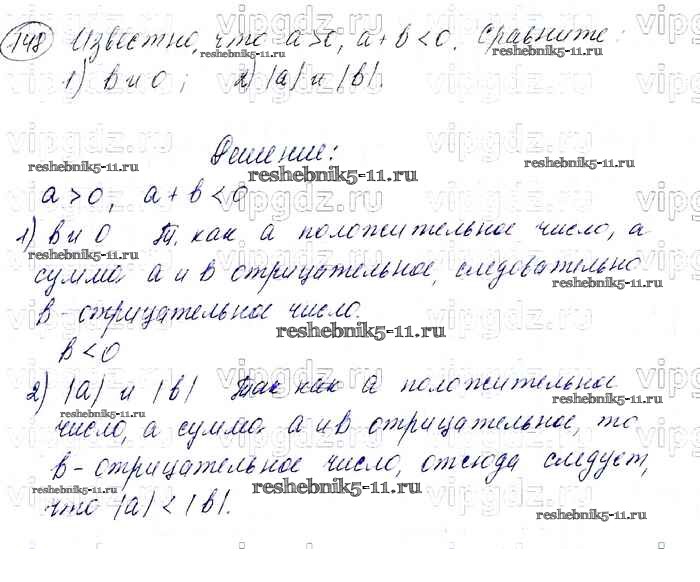 148 Известно, что a>0, a+b<0. Сравните:
1) b и 0; 2) |a| и |b|.
Решение:
a>0, a+b<0
1) b и 0 Т. как a положительное число, а
сумма a и b отрицательное, следовательно
b - отрицательное число.
b<0
2) |a| и |b| Так как a положительное
число, а сумма a и b отрицательное, то
b - отрицательное число, отсюда следует,
что |a|<|b|.
vipgdz.ru
reshebnik5-11.ru